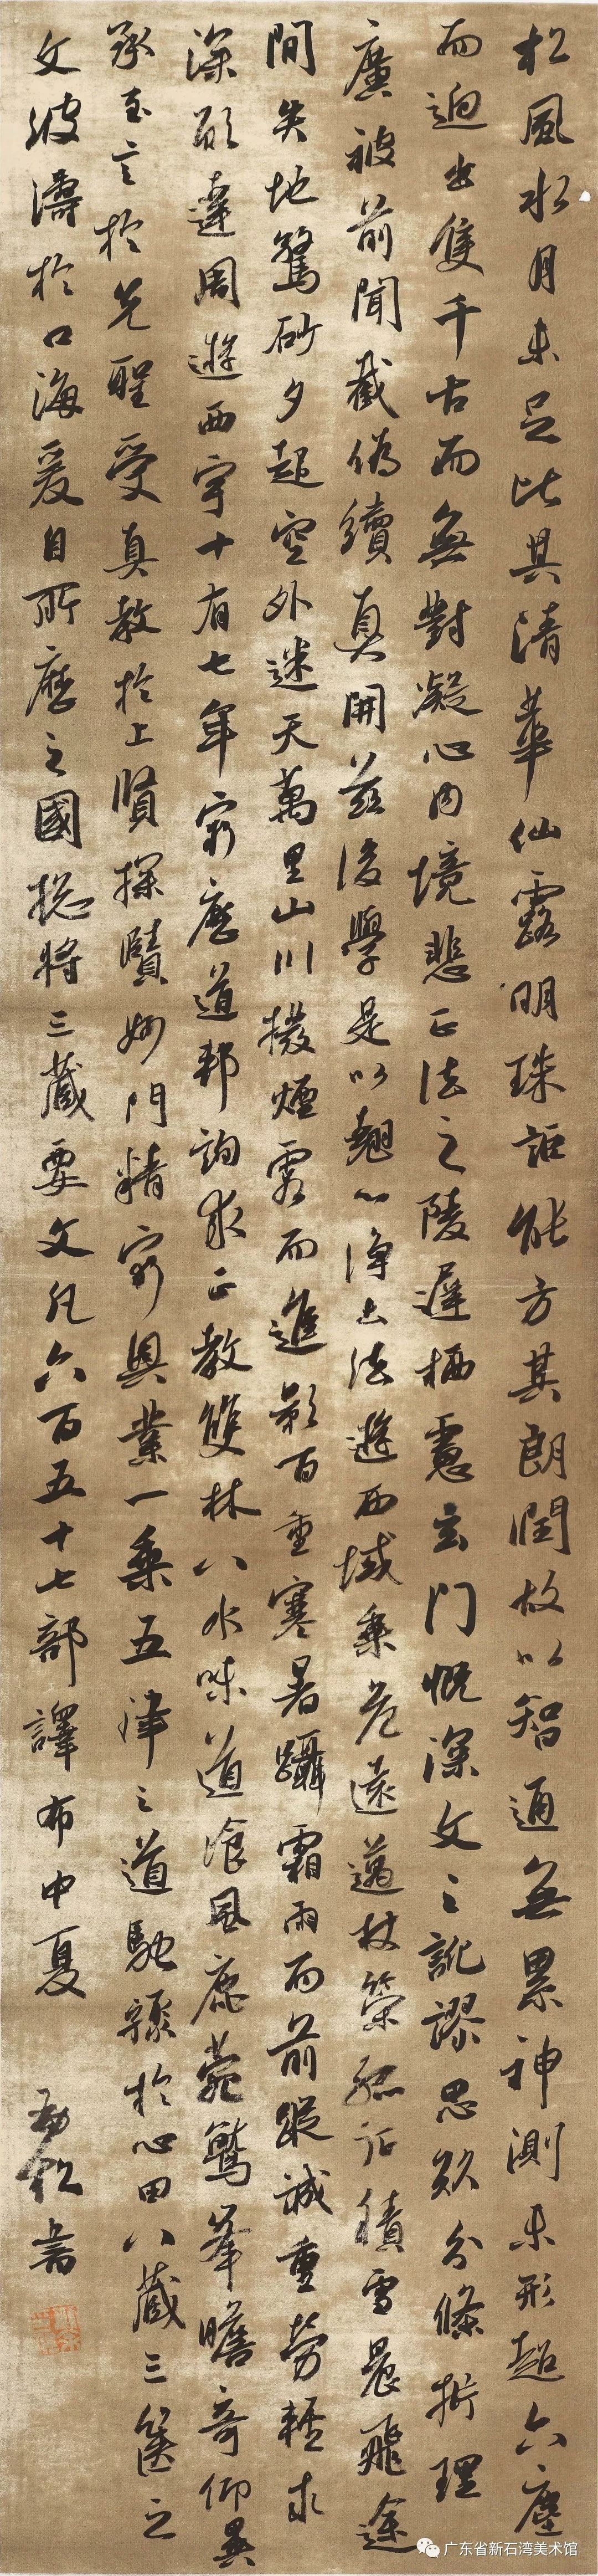 松風水月未足比其清華仙露明珠詎能方其朗潤故以智通無累神測未形超六塵
而迥出隻千古而無對凝心內境悲正法之陵遲栖慮玄門慨深文之訛謬思欲分條析理
廣被前聞截偽續真開茲後學是以翹心淨土法遊西域乘危遠邁杖策孤征積雪晨飛途
間失地驚砂夕起空外迷天萬里山川撥煙霞而進影百重寒暑躡霜雨而前蹤誠重勞輕求
深願達周遊西宇十有七年窮歷道邦詢求正教雙林八水味道飡風鹿菀鷲峯瞻奇仰異
承至言於先聖受真教於上賢探賾妙門精窮奧業一乘五律之道馳驟於心田八藏三篋之
文波濤於口海爰自所歷之國揔將三藏要文凡六百五十七部譯布中夏
广东省新石湾美术馆